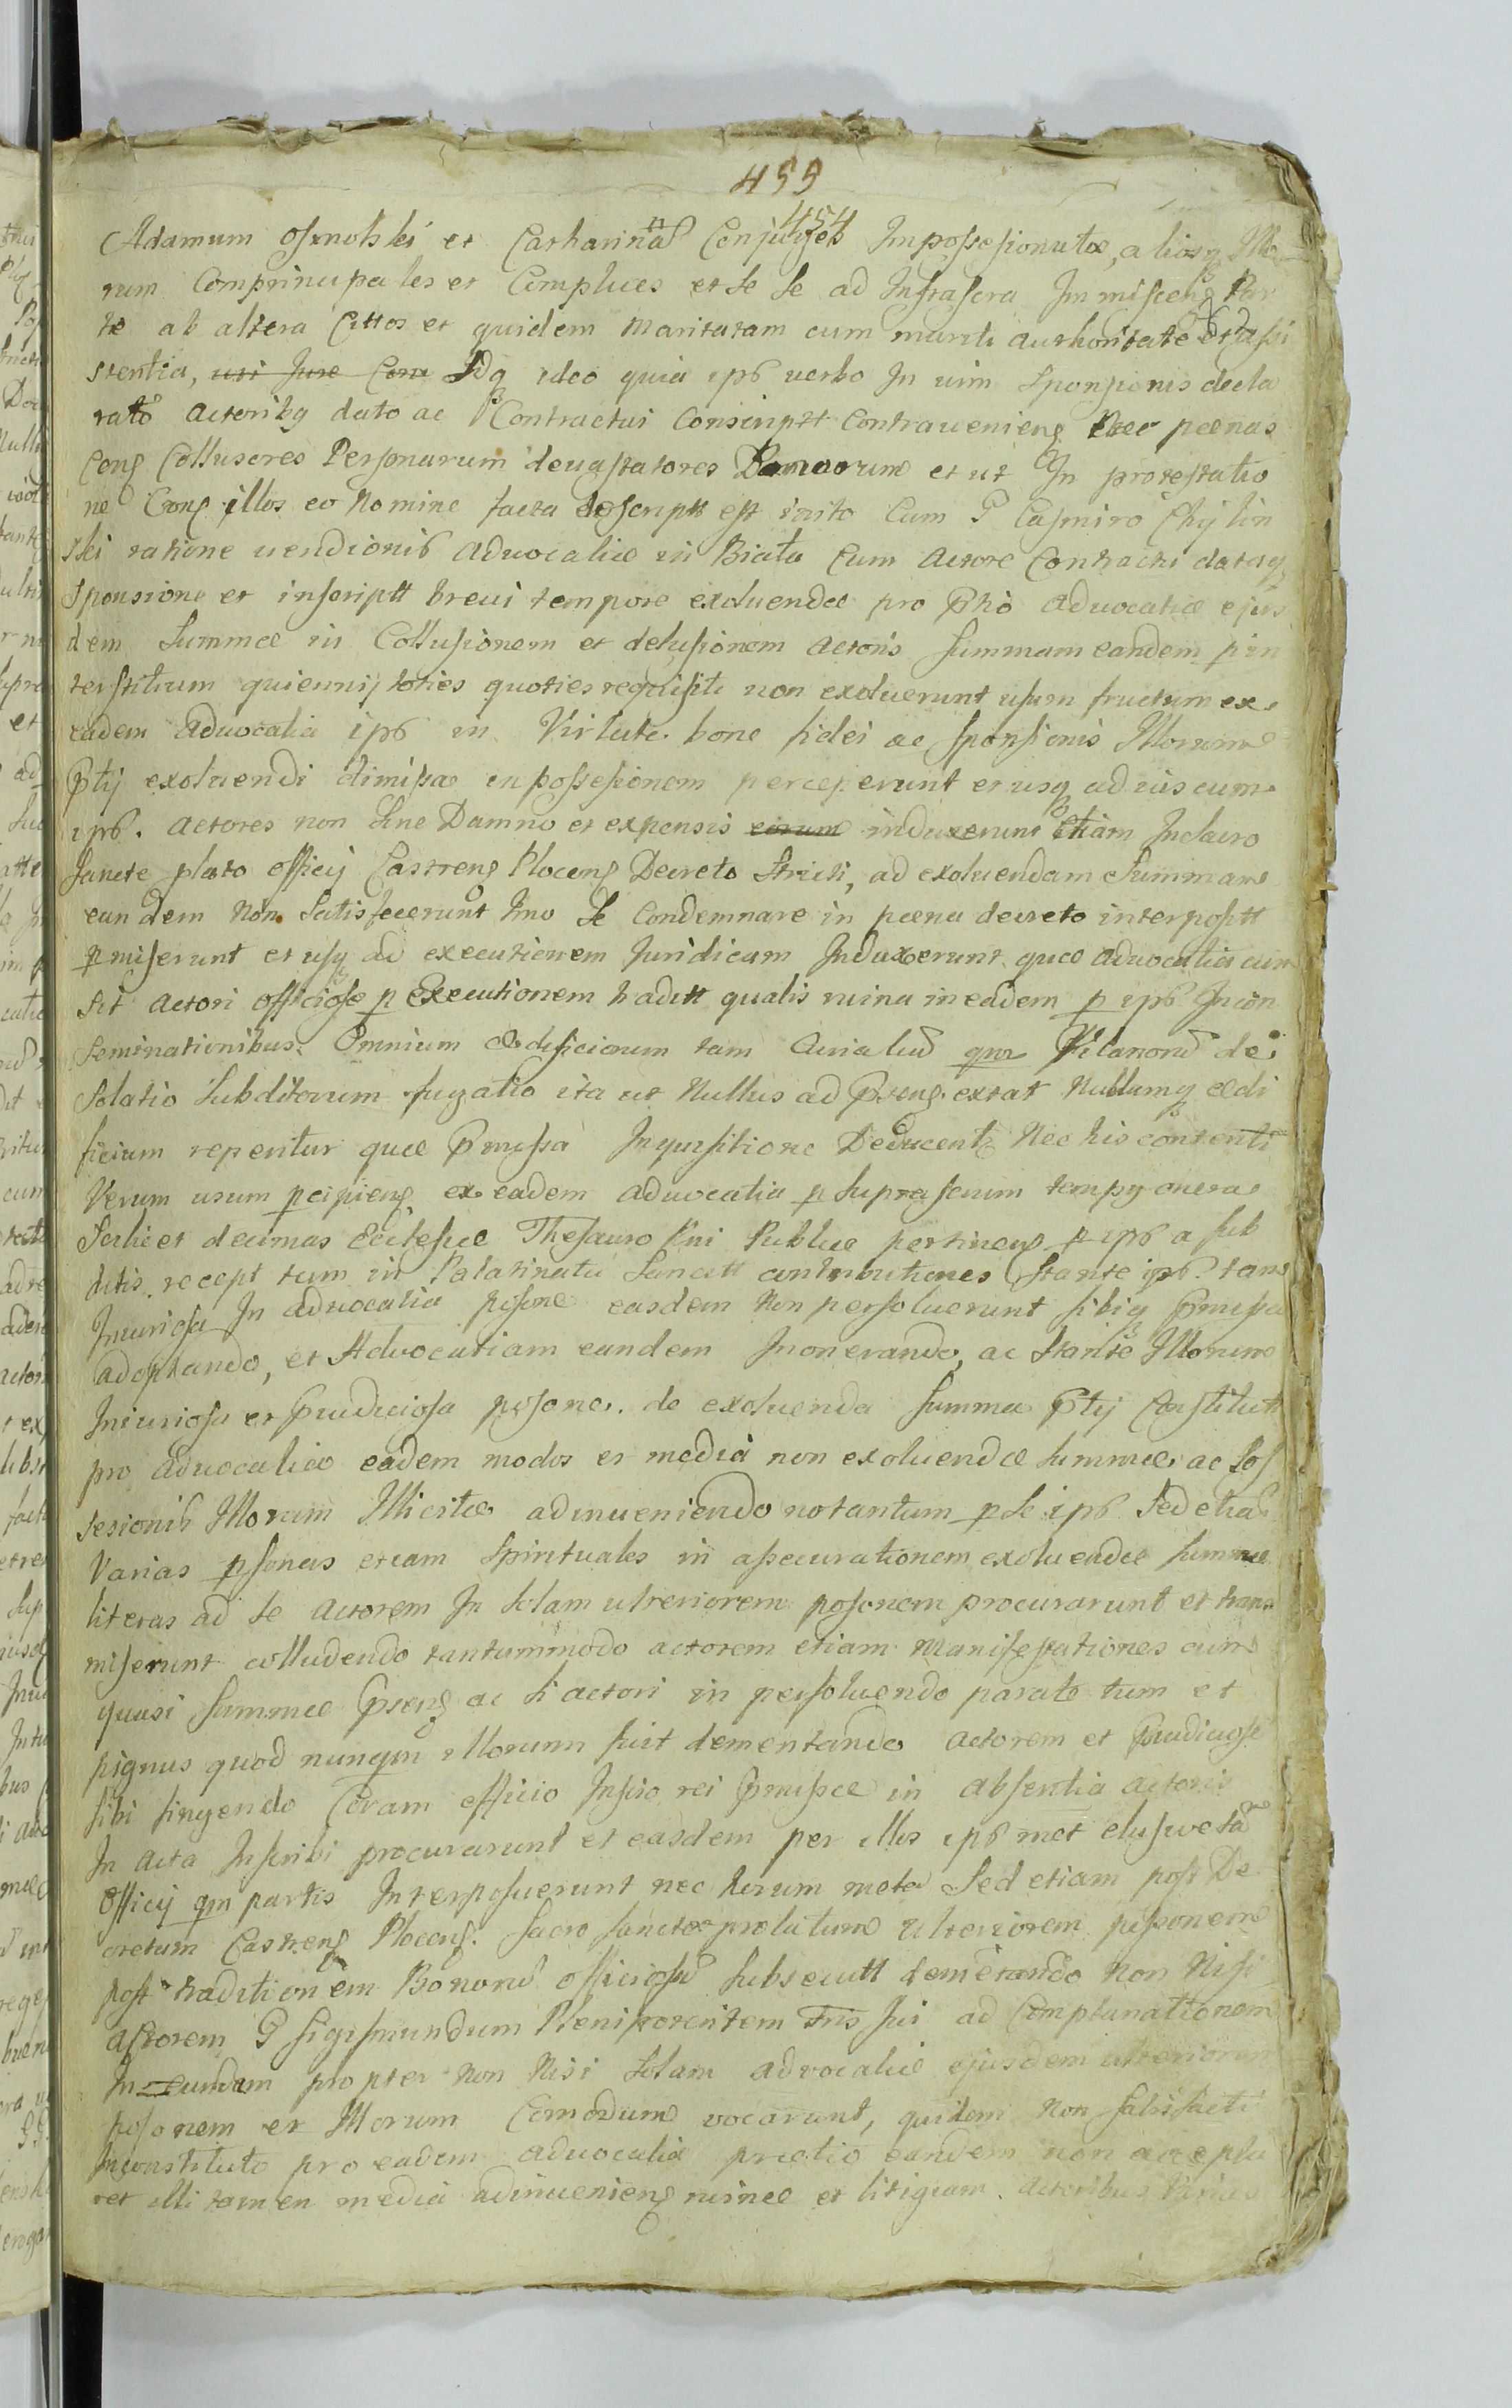 459
454
Adamum Osmolski et Catharinã Conjuges Impossesionatæ, aliosq Illo
rum Comprincipales et Complices et se se ad Infrascra Immisceng Par
te ab altera Cittos et quidem maritatam cum mariti authoritate et assi
stentia, uti Jure Idq ideo quia ips verbo In vim Sponsionis decla
rato actoribq dato ac Contractui Conscriptt Contravenieng poenas
Conq Collusores Personarum devastatores et ut In protestatio
ne Conq illos eo nomine facta descriptt est inito Cum G Casmiro Chylin
ski ratione vendionis advocatiæ in Biała Cum Actore Contractu dataq
Sponsione et inscriptt brevi tempore exolvendæ pro ptio advocatiæ ejus
dem Summæ in Collusionem et delusionem actoris Summam eandem p in
terstitium quiennij toties quoties requisiti non exolverunt usum fructum ex
eadem advocatia ips in Virtute bone fidei ac Sponsionis Illorum
ptij exolvendi dimissæ in possesionem perceperunt et usq ad juis cum
ips. actores non sine Damno et expensis eorum induxerunt Etiam In
Sancte plato officij Castreng Ploceng Decreto Stricti, ad exolvendam Summam
eandem non Satisfecerunt Imo Se Condemnare in poena decreto interpositt
pmiserunt et usq ad executionem Juridicam Induxerunt quæ advocatia cum
sit actori officiose p Executionem traditt qualis ruina in eadem p ips In con
Seminationibus, Omnium ædificiorum tam Curialiu qm de
solatio Subditorum fugatio ita ut Nullus ad Pseng extat Nullumq ædi
ficium reperitur quæ Pmissa Inquisitione Deducentr Nec his contenti
Verum usum pcipieng ex eadem advocatia p suprascrum tempg onera
Scilicet decimas Ecclesiæ Thesauro Rni Publicæ pertineng p ips a sub
ditis recept tum in Palatinatu Sancitt contributiones Stante ips tam
Iniuriosa In advocatia posone easdem Non persolverunt sibiq Pmissa
adoptando, et Advocatiam eandem Inonerando, ac Stante Illorum
Iniuriosa et Pudiciosa posone. de exolvenda Summa Ptij Constitutt
pro advocatia eadem modos et media non exolvendæ Summæ ac Pos
sesionis Illorum Illicitæ adinveniendo notantum p se ips Sed etiã
Varias psonas etiam Spirituales in assecurationem exolvendæ Summæ
literas ad se actorem In solam ulteriorem posonem procurarunt et trans
miserunt colludendo tantummodo actorem etiam Manifestationes cum
quasi Summæ Pseng ac si actori in persolvendo parato tum et
pignus quod nunqm illorum fuit dementando actorem et Pudiciose
sibi fingendo Coram officio Inscio rei Pmissæ in absentia actoris
In acta Inscribi procurarunt et easdem per illos ips met elusive tã
Officij qm partis Interposuerunt nec horum mota Sed etiam post De
cretum Castreng Ploceng. Sacro Sancte prolatum Ulteriorem possonem
post traditionem Bonorũ officiosũ subsecutt Non Nisi
actorem G Sigismundum Plenipotentem Fris Sui ad Complanationem
Ineundam propter non Nisi Solam advocatiæ ejusdem ulteriorem
posonem et Illorum Comodum vocarunt, quidem Non Satisfacti
In constituto pro eadem advocatia prætio eandem non accepta
ret illi tamen media adinvenieng ruinæ et litigium. Actoribus Varias